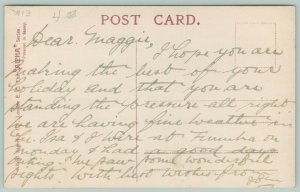 POST CARD.
Dear Maggie,
I hope you are
making the best of your
holiday and that you are
standing the pressure all right
we are having fine weather in
I were at
Monday & had a good days
outing. We saw some wonderful
sights. With best wishes from